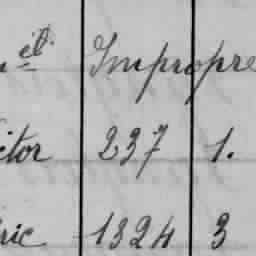 n él. Impropre
ctor 237 1.
ric 1324 3